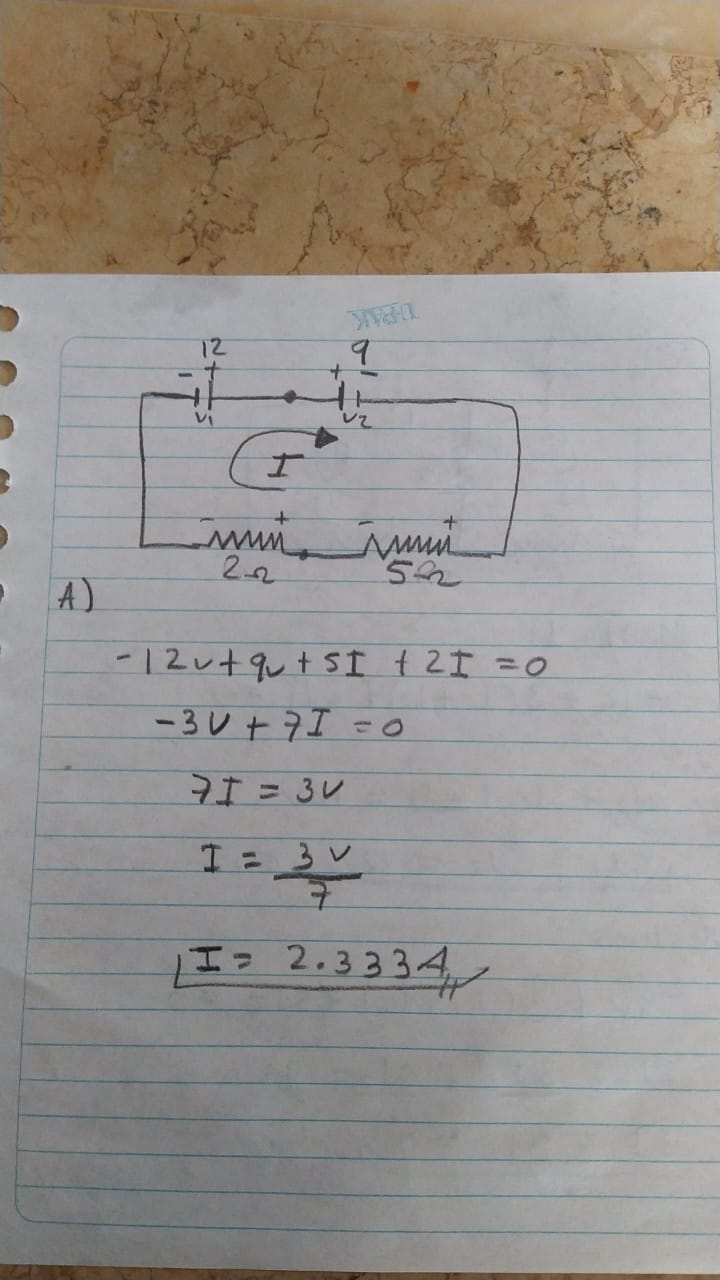 12 9
- + + -
V1 V2
I
- + - +
2Ω 5Ω
A)
-12v+9v+5I+2I=0
-3V+7I=0
7I=3V
I=3V/7
I=2.333A